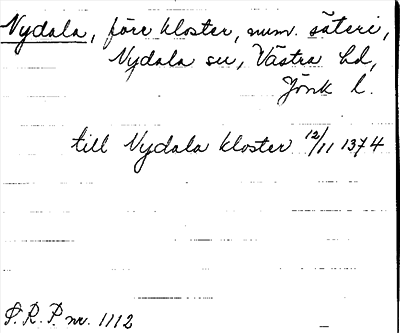 Nydala, före kloster, num. säteri,
Nydala sn, Västra hd,
Jönk l.
till Nydala kloster 12/11 1374
S.R.P. nr. 1112